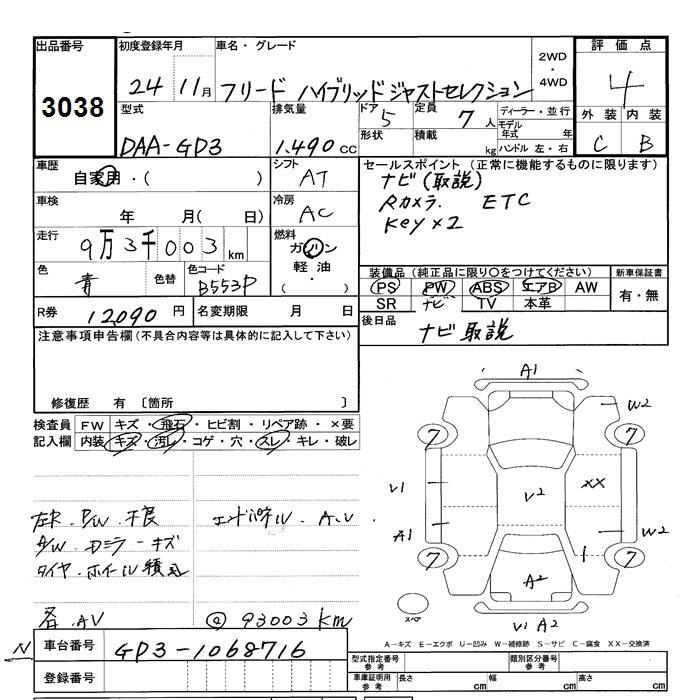 出品番号 初度登録年月 車名・グレード 2WD・4WD 評価点
3038 24 11月 フリード ハイブリッド ジャストセレクション 4
型式 排気量 ドア 5 定員 7人 ディーラー・並行 外装 内装
DAA-GD3 1.490 cc 形状 積載 kg モデル年式 年 ハンドル 左・右 C B
車歴 シフト セールスポイント (正常に機能するものに限ります)
自家用・( ) AT ナビ(取説)
車検 冷房 Rカメラ. ETC
年 月( 日) AC Key×2
走行 9万3千003km 燃料 ガソリン
軽油・( )
色 青 色替 色コード B553P
装備品 (純正品に限り〇をつけてください) 新車保証書
PS PW ABS エアB AW 有・無
SR ナビ TV 本革
R券 12,090 円 名変期限 月 日 後日品 ナビ取説
注意事項申告欄(不具合内容等は具体的に記入して下さい)
修復歴 有 〔箇所 〕
検査員 FW キズ・飛石・ヒビ割・リペア跡・×要
記入欄 内装 キズ・汚レ・コゲ・穴・スレ・キレ・破レ
左R.P/W.不良 エンドパネル.A.U
A/W.カミラーキズ
タイヤ.ホイール積込
各.AV @93003km
A1
W2
7 7
V1 V2 XX
A1 W2
7 1 7
A2
スペア V1 A2
A-キズ E-エクボ U-凹み W-補修跡 S-サビ C-腐食 XX-交換済
N 車台番号 GD3-1068716
登録番号
型式指定番号 参考 類別区分番号 参考
車庫証明用 参考 長さ cm 幅 cm 高さ cm